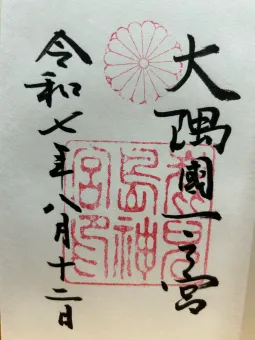 大隅國一之宮
鹿児島神宮印
令和七年八月十二日